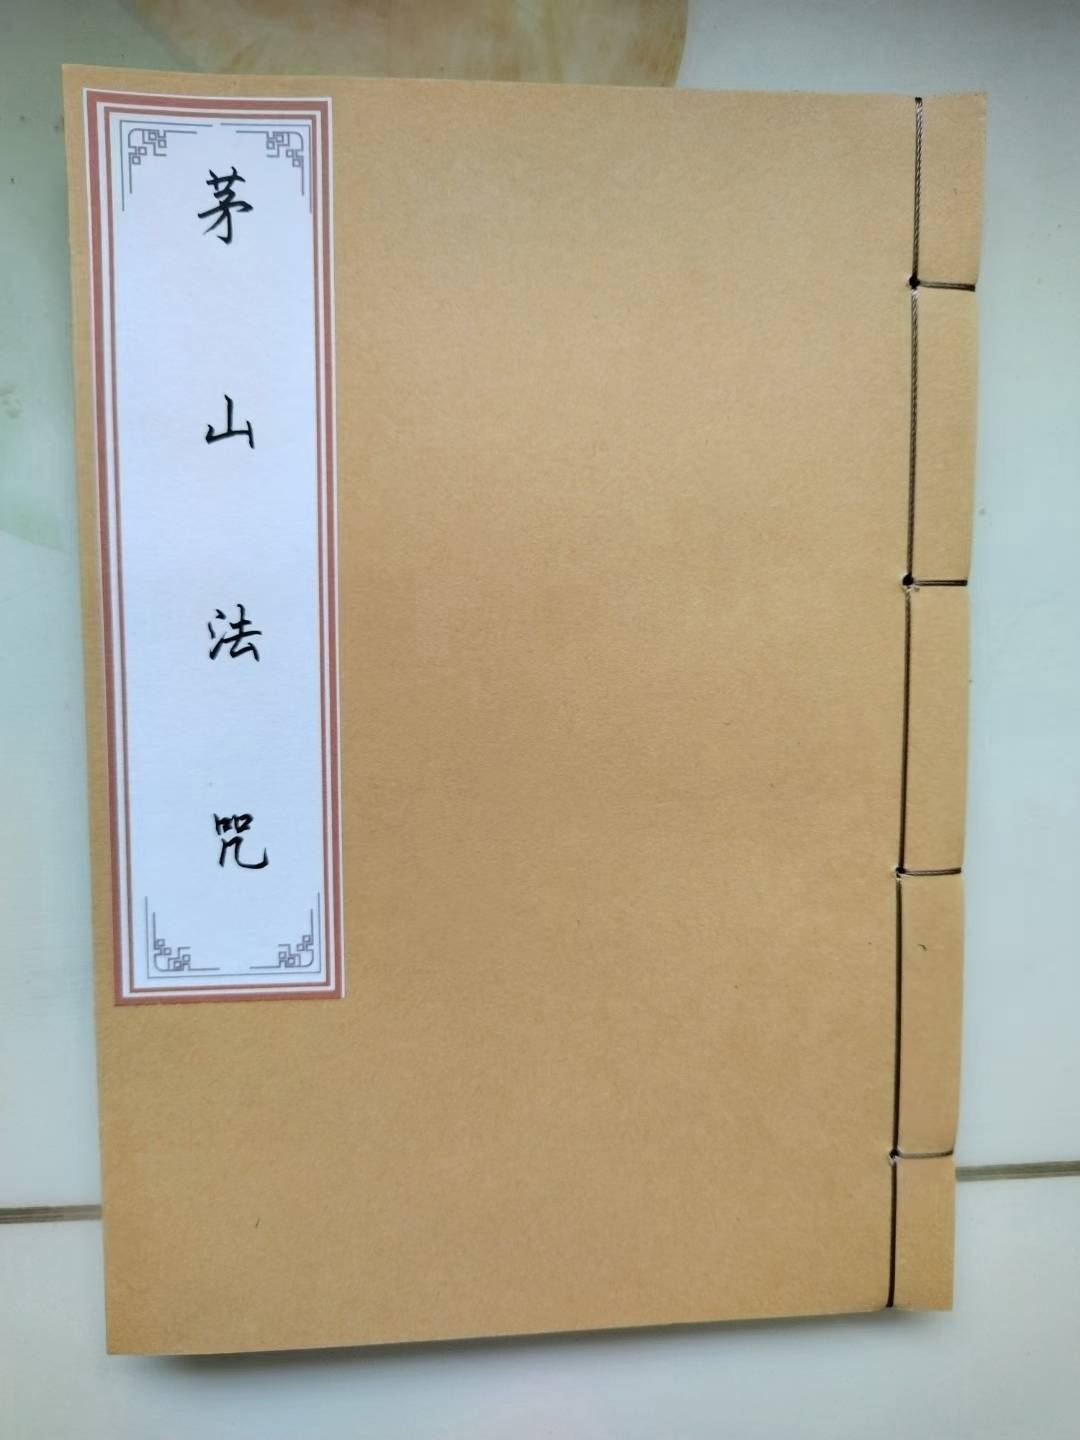 茅山法咒